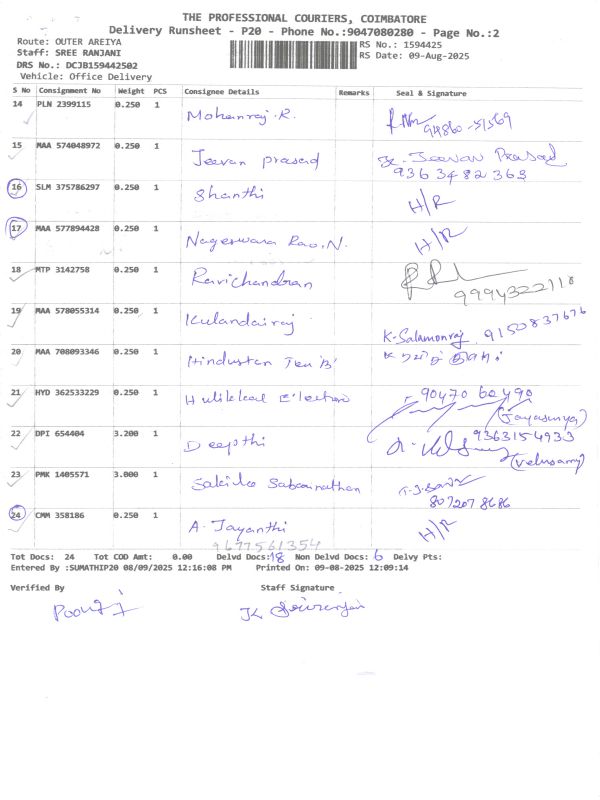 THE PROFESSIONAL COURIERS, COIMBATORE
Delivery Runsheet - P20 - Phone No.:9047080280 - Page No.:2
Route: OUTER AREIYA
RS No.: 1594425
Staff: SREE RANJANI
RS Date: 09-Aug-2025
DRS No.: DCJB159442502
Vehicle: Office Delivery
S No Consignment No Weight PCS Consignee Details Remarks Seal & Signature
14 PLN 2399115 0.250 1 Mohanraj.R. 94860-51569
15 MAA 574048972 0.250 1 Jeevan prasad Jeevan Prasad
9363482363
16 SLM 375786297 0.250 1 Shanthi H/R
17 MAA 577894428 0.250 1 Nageswara Rao.N. H/R
18 MTP 3142758 0.250 1 Ravichandran 9994322118
19 MAA 578055314 0.250 1 Kulandairaj K-Salamonraj 9150837676
20 MAA 708093346 0.250 1 Hindustan 'B'
21 HYD 362533229 0.250 1 Hulikkal 90470 60490
(Jayasurya)
22 DPI 654404 3.200 1 Deepthi 9363154933
(Velusamy)
23 PMK 1405571 3.000 1 8072078686
24 CMM 358186 0.250 1 A. Jayanthi H/R
9677561354
Tot Docs: 24 Tot COD Amt: 0.00 Delvd Docs:18 Non Delvd Docs:6 Delvy Pts:
Entered By :SUMATHIP20 08/09/2025 12:16:08 PM Printed On: 09-08-2025 12:09:14
Verified By Staff Signature